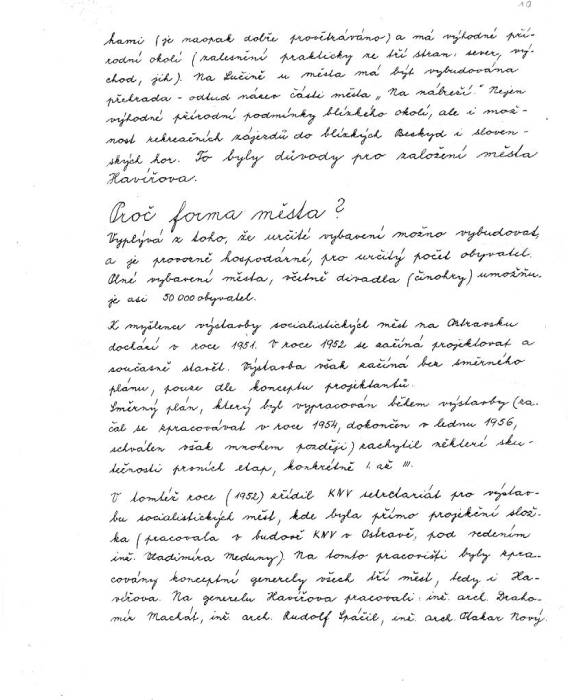 10
hami (je naopak dobře provětráváno) a má výhodné pří-
rodní okolí (zalesnění prakticky ze tří stran: sever, vý-
chod, jih). Na Lučině u města má být vybudována
přehrada - odtud název části města „Na nábřeží." Nejen
výhodné přírodní podmínky blízkého okolí, ale i mož-
nost rekreačních zájezdů do blízkých Beskyd i sloven-
ských hor. To byly důvody pro založení města
Havířova.
Proč forma města?
Vyplývá z toho, že určité vybavení možno vybudovat,
a je provozně hospodárné, pro určitý počet obyvatel.
Plné vybavení města, včetně divadla (činohry) umožňu-
je asi 50 000 obyvatel.
K myšlence výstavby socialistických měst na Ostravsku
dochází v roce 1951. V roce 1952 se začíná projektovat a
současně stavět. Výstavba však začíná bez směrného
plánu, pouze dle konceptu projektantů.
Směrný plán, který byl vypracován během výstavby (za-
čal se zpracovávat v roce 1954, dokončen v lednu 1956,
schválen však mnohem později) zachytil některé sku-
tečnosti prvních etap, konkrétně I. až III.
V tomtéž roce (1952) zřídil KNV sekretariát pro výstav-
bu socialistických měst, kde byla přímo projekční slož-
ka (pracovala v budově KNV v Ostravě, pod vedením
inž. Vladimíra Meduny). Na tomto pracovišti byly zpra-
covány konceptní generely všech tří měst, tedy i Ha-
vířova. Na generelu Havířova pracovali: inž. arch. Draho-
mír Machát, inž. arch. Rudolf Spáčil, inž. arch. Otakar Nový.